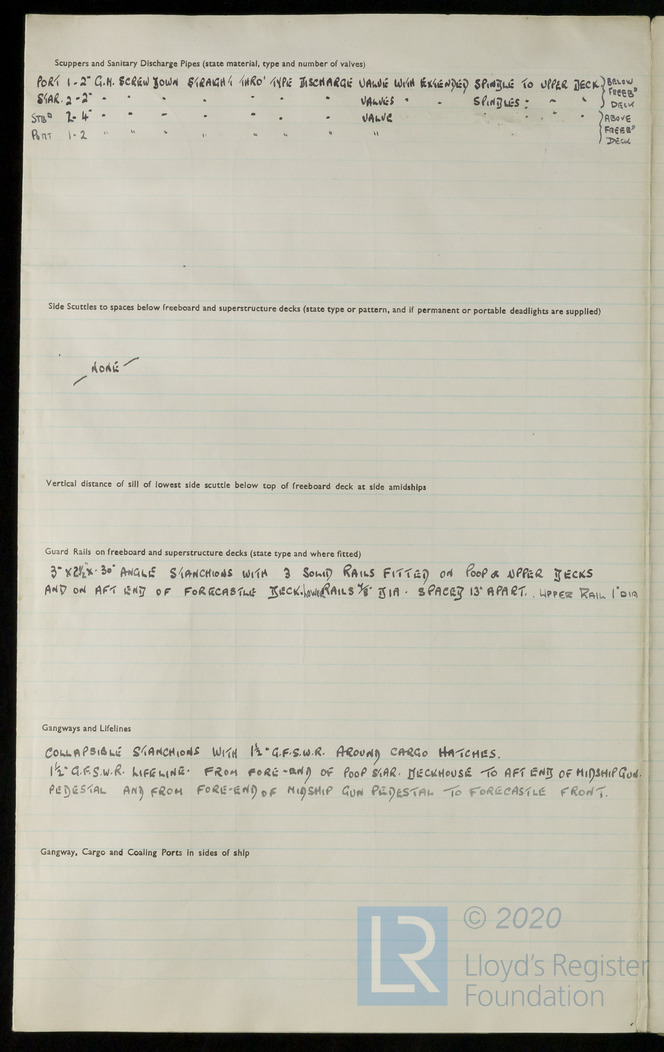 Scuppers and Sanitary Discharge Pipes (state material, type and number of valves)
PORT 1-2" G.M. SCREW DOWN STRAIGHT THRO' TYPE DISCHARGE VALVE WITH EXTENDED SPINDLE TO UPPER DECK } BELOW FREEBD DECK
STAR. 2-2" " " " " " " " VALVES " " SPINDLES " " "
STBD 2-4" " " " " " " " VALVE " " " " } ABOVE FREEBD DECK
PORT 1-2 " " " " " " " "
Side Scuttles to spaces below freeboard and superstructure decks (state type or pattern, and if permanent or portable deadlights are supplied)
NONE
Vertical distance of sill of lowest side scuttle below top of freeboard deck at side amidships
Guard Rails on freeboard and superstructure decks (state type and where fitted)
3" x 2½" x .30" ANGLE STANCHIONS WITH 3 SOLID RAILS FITTED ON POOP & UPPER DECKS
AND ON AFT END OF FORECASTLE DECK. Lower RAILS DIA. SPACED 13" APART. UPPER RAIL 1" DIA
Gangways and Lifelines
COLLAPSIBLE STANCHIONS WITH 1½" G.F.S.W.R. AROUND CARGO HATCHES.
1½" G.F.S.W.R. LIFELINE. FROM FORE-END OF POOP STAR. DECKHOUSE TO AFT END OF MIDSHIP GUN.
PEDESTAL AND FROM FORE-END OF MIDSHIP GUN PEDESTAL TO FORECASTLE FRONT.
Gangway, Cargo and Coaling Ports in sides of ship
LR © 2020
Lloyd's Register
Foundation